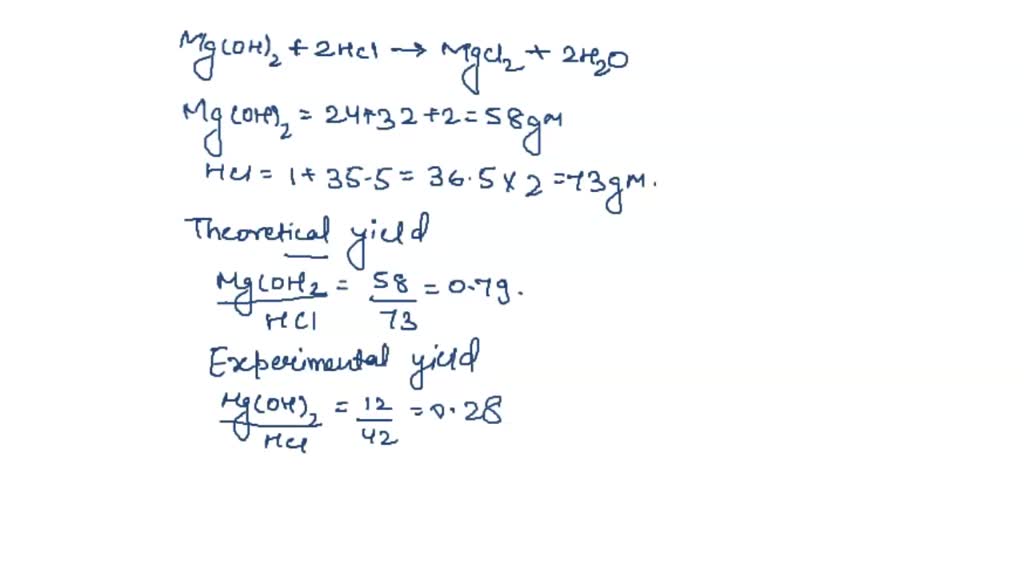 Mg(OH)₂ + 2HCl → MgCl₂ + 2H₂O
Mg(OH)₂ = 24+32+2 = 58gm
HCl = 1+35.5 = 36.5×2 = 73gm.
Theoretical yield
Mg(OH₂ / HCl = 58 / 73 = 0.79.
Experimental yield
Mg(OH)₂ / HCl = 12 / 42 = 0.28